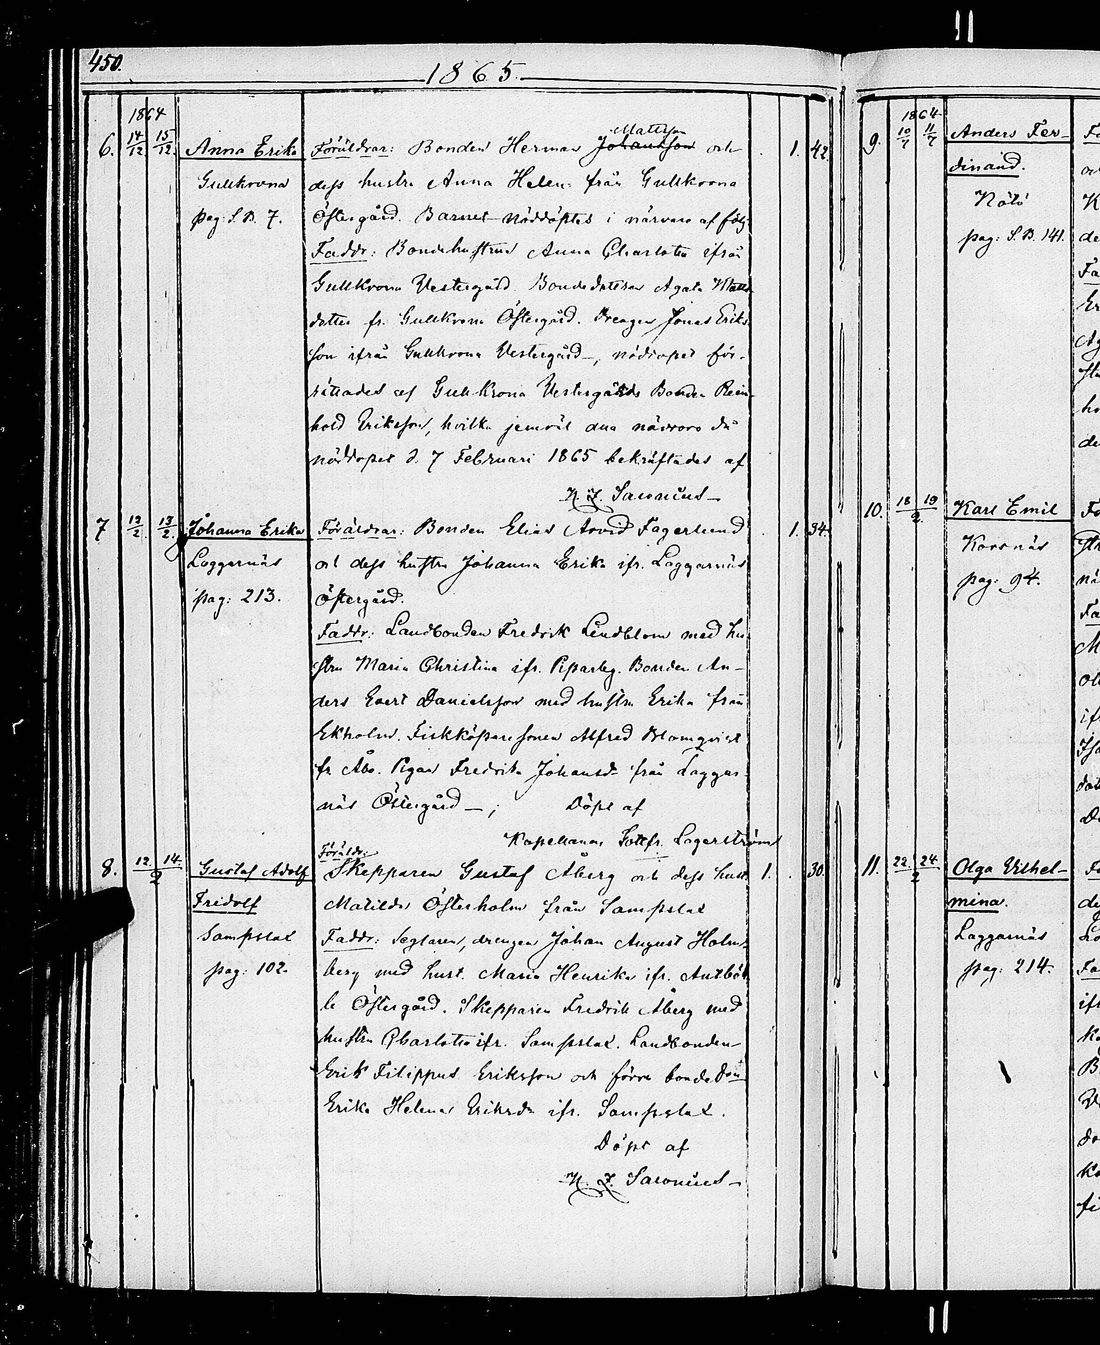 450.
1865.
1864
6. 14/12 15/12 Anna Erika Föräldrar: Bonden Herman Johansson Mattsson och 1. 42.
Gullkrona dess hustru Anna Helen: från Gullkrona
pag: S.B. 7. Östergård. Barnet nöddöptes i närvaro af följ:
Faddr: Bondehustrun Anna Charlotta ifrån
Gullkrona Vestergård. Bondedottren Agata Matts
dotter fr. Gullkrona Östergård. Drengen Jonas Eriks
son ifrån Gullkrona Vestergård –, nöddopet för-
rättades af Gullkrona Vestergårds Bonden Rein
hold Eriksson, hvilka jemväl alla närvoro då
nöddopet d. 7 Februari 1865 bekräftades af
N. F. Saxonius –
7 13/2 13/2 Johanna Erika Föräldrar: Bonden Elias Arvid Fagerlund 1. 34.
Laggarnäs och dess hustru Johanna Erika ifr. Laggarnäs
pag: 213. Östergård.
Faddr: Landbonden Fredrik Lindblom med hu-
stru Maria Christina ifr. Piparby. Bonden An-
ders Evert Danielsson med hustru Erika från
Ekholm. Fiskköparesonen Alfred Blomqvist
fr. Åbo. Pigan Fredrika Johansd. från Laggar-
näs Östergård – ; Döpt af
Kapellanen Gottfr. Lagerström
8. 12. 14./2 Gustaf Adolf Föräldr: Skepparen Gustaf Åberg och dess hust. 1. 30.
Fridolf Matilda Österholm från Sampstal
Sampstal Faddr: Seglaren, drengen Johan August Holm-
pag: 102. berg med hust. Maria Henrika ifr. Antböl
le Östergård. Skepparen Fredrik Åberg med
hustru Charlotta ifr. Sampstal. Landbonden
Erik Filippus Eriksson och förra bonde
Erika Helena Eriksd. ifr. Sampstal.
Döpt af
N. F. Saxonius –
1864
9. 10/7 11/7 Anders Fer-
dinand.
Nötö
pag: S.B. 141.
10. 18 19/2. Karl Emil
Korsnäs
pag: 94.
11. 22. 24./2 Olga Vilhel-
mina.
Laggarnäs
pag: 214.